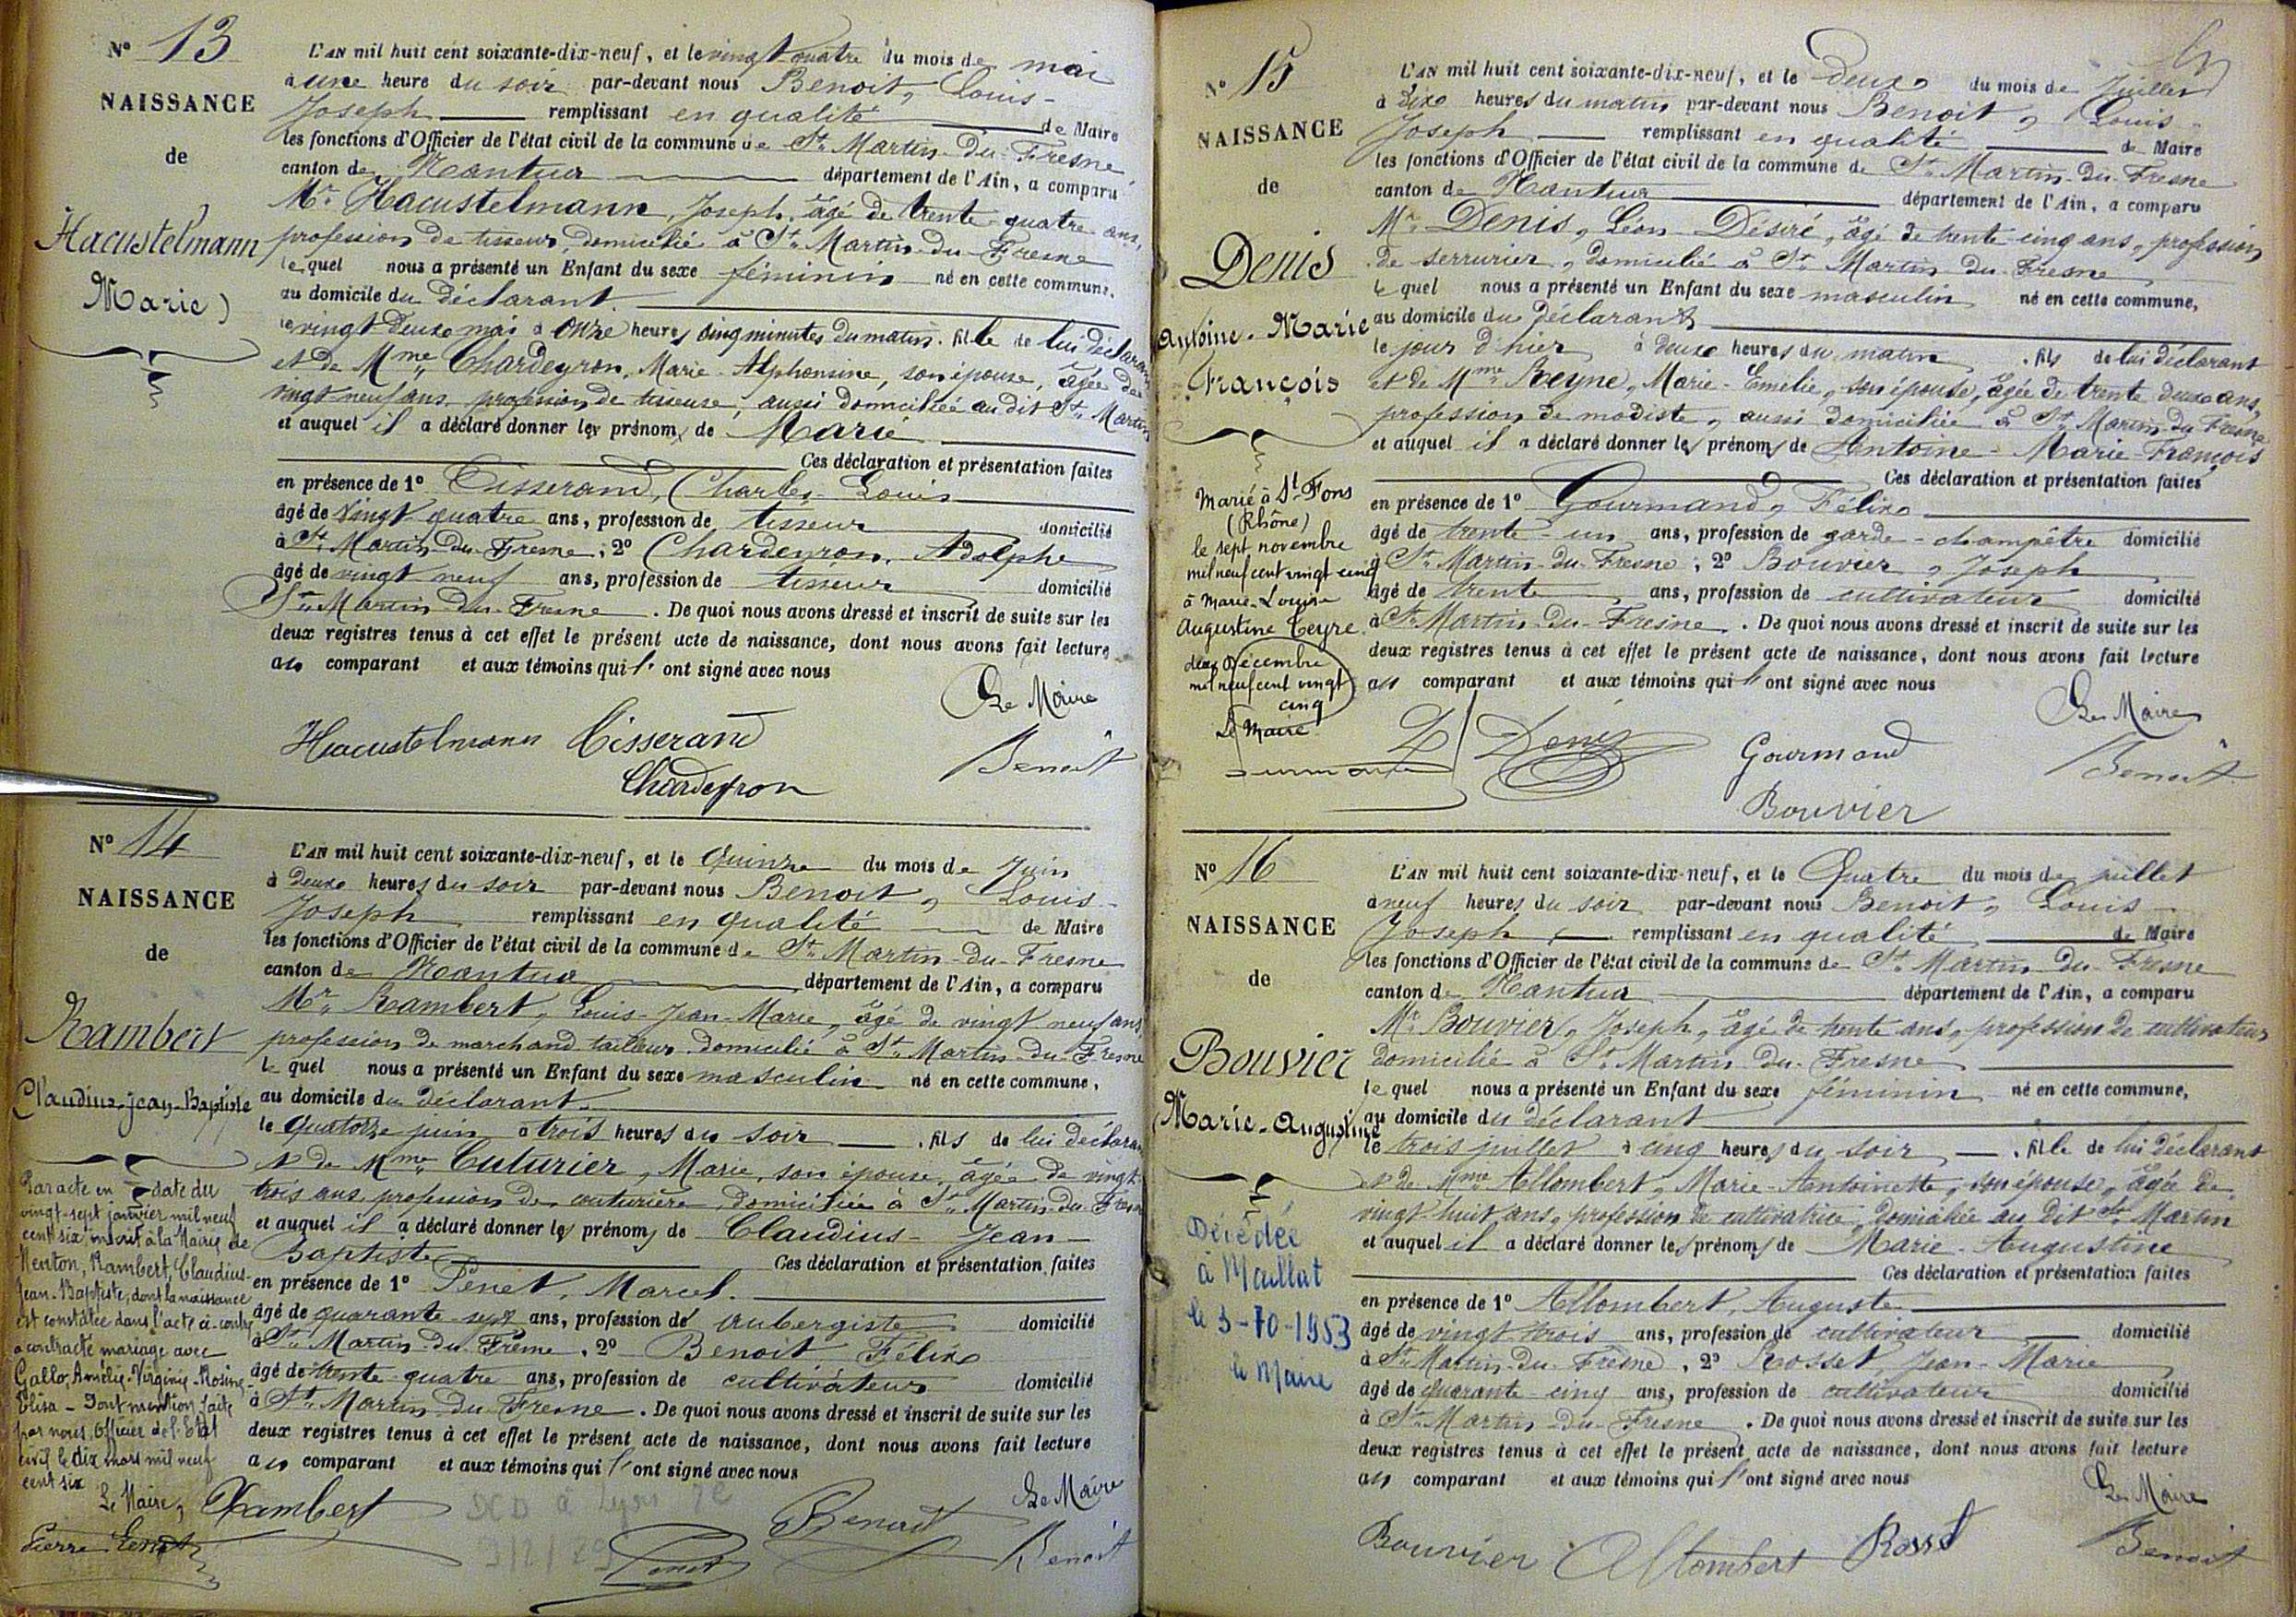 N° 13
NAISSANCE
de
Hacustelmann
Marie
L'AN mil huit cent soixante-dix-neuf, et le vingt quatre du mois de mai
à une heure du soir par-devant nous Benoit, Louis-
Joseph remplissant en qualité de Maire
les fonctions d'Officier de l'état civil de la commune de St. Martin-du-Fresne
canton de Nantua département de l'Ain, a comparu
Mr. Hacustelmann, Joseph, âgé de trente-quatre ans,
profession de tisseur, domicilié à St. Martin-du-Fresne
lequel nous a présenté un Enfant du sexe féminin né en cette commune,
au domicile du déclarant
le vingt deux mai à onze heures cinq minutes du matin. fille de lui déclarant
et de Mme Chardeyron, Marie-Alphonsine, son épouse, âgée de
vingt-neuf ans, profession de tisseuse, aussi domiciliée au dit St. Martin
et auquel il a déclaré donner les prénoms de Marie
Ces déclaration et présentation faites
en présence de 1° Tisserand, Charles-Louis
âgé de vingt-quatre ans, profession de tisseur domicilié
à St. Martin-du-Fresne; 2° Chardeyron, Adolphe
âgé de vingt neuf ans, profession de tisseur domicilié
St. Martin-du-Fresne. De quoi nous avons dressé et inscrit de suite sur les
deux registres tenus à cet effet le présent acte de naissance, dont nous avons fait lecture
au comparant et aux témoins qui l'ont signé avec nous
Le Maire
Hacustelmann Tisserand Benoit
Chardeyron
N° 14
NAISSANCE
de
Rambert
Claudius-Jean-Baptiste
Par acte en date du
vingt-sept janvier mil neuf
cent six inscrit à la Mairie de
Menton, Rambert, Claudius-
Jean-Baptiste, dont la naissance
est constatée dans l'acte ci-contre
a contracté mariage avec
Gallo, Amélie-Virginie-Rosine-
Elisa - Dont mention faite
par nous, Officier de l'Etat
civil le dix mars mil neuf
cent six
Le Maire,
Pierre
L'AN mil huit cent soixante-dix-neuf, et le Quinze du mois de Juin
à deux heures du soir par-devant nous Benoit, Louis-
Joseph remplissant en qualité de Maire
les fonctions d'Officier de l'état civil de la commune de St. Martin-du-Fresne
canton de Nantua département de l'Ain, a comparu
Mr. Rambert, Louis-Jean-Marie, âgé de vingt neuf ans,
profession de marchand tailleur domicilié à St. Martin-du-Fresne
lequel nous a présenté un Enfant du sexe masculin né en cette commune,
au domicile du déclarant
le quatorze juin à trois heures du soir. fils de lui déclarant
et de Mme Cuturier, Marie, son épouse, âgée de vingt-
trois ans, profession de couturière, domiciliée à St. Martin-du-Fresne
et auquel il a déclaré donner les prénoms de Claudius-Jean-
Baptiste Ces déclaration et présentation faites
en présence de 1° Penet, Marcel.
âgé de quarante-sept ans, profession de aubergiste domicilié
à St. Martin-du-Fresne, 2° Benoit Félix
âgé de trente-quatre ans, profession de cultivateur domicilié
à St. Martin du Fresne. De quoi nous avons dressé et inscrit de suite sur les
deux registres tenus à cet effet le présent acte de naissance, dont nous avons fait lecture
au comparant et aux témoins qui l'ont signé avec nous
Le Maire
Rambert Benoit Benoit
Penet
N° 15
NAISSANCE
de
Denis
Antoine-Marie
François
Marié à St-Fons
(Rhône)
le sept novembre
mil neuf cent vingt cinq
à Marie-Louise
Augustine Teyre
deux Décembre
mil neuf cent vingt
cinq
Le Maire
L'AN mil huit cent soixante-dix-neuf, et le Deux du mois de Juillet
à dix heures du matin par-devant nous Benoit, Louis-
Joseph remplissant en qualité de Maire
les fonctions d'Officier de l'état civil de la commune de St. Martin-du-Fresne
canton de Nantua département de l'Ain, a comparu
Mr. Denis, Léon-Désiré, âgé de trente-cinq ans, profession
de serrurier, domicilié à St. Martin du Fresne
lequel nous a présenté un Enfant du sexe masculin né en cette commune,
au domicile du déclarant
le jour d'hier à deux heures du matin. fils de lui déclarant
et de Mme Reyne, Marie-Emélie, son épouse, âgée de trente deux ans,
profession de modiste, aussi domiciliée à St. Martin-du-Fresne
et auquel il a déclaré donner les prénoms de Antoine-Marie-François
Ces déclaration et présentation faites
en présence de 1° Gourmand, Félix
âgé de trente-un ans, profession de garde-champêtre domicilié
à St. Martin-du-Fresne; 2° Bouvier, Joseph
âgé de trente ans, profession de cultivateur domicilié
à St. Martin-du-Fresne. De quoi nous avons dressé et inscrit de suite sur les
deux registres tenus à cet effet le présent acte de naissance, dont nous avons fait lecture
au comparant et aux témoins qui l'ont signé avec nous
Le Maire
Denis Gourmand Benoit
Bouvier
N° 16
NAISSANCE
de
Bouvier
Marie-Augustine
Décédée
à Maillat
le 3-10-1953
le Maire
L'AN mil huit cent soixante-dix-neuf, et le Quatre du mois de juillet
à neuf heures du soir par-devant nous Benoit, Louis
Joseph remplissant en qualité de Maire
les fonctions d'Officier de l'état civil de la commune de St. Martin-du-Fresne
canton de Nantua département de l'Ain, a comparu
Mr. Bouvier, Joseph, âgé de trente ans, profession de cultivateur
domicilié à St. Martin-du-Fresne
lequel nous a présenté un Enfant du sexe féminin né en cette commune,
au domicile du déclarant
le trois juillet à cinq heures du soir. fille de lui déclarant
et de Mme Allombert, Marie-Antoinette, son épouse, âgée de
vingt-huit ans, profession de cultivatrice domiciliée au dit St. Martin
et auquel il a déclaré donner les prénoms de Marie-Augustine
Ces déclaration et présentation faites
en présence de 1° Allombert, Auguste
âgé de vingt trois ans, profession de cultivateur domicilié
à St. Martin-du-Fresne, 2° Rosset, Jean-Marie
âgé de quarante-cinq ans, profession de cultivateur domicilié
à St. Martin-du-Fresne. De quoi nous avons dressé et inscrit de suite sur les
deux registres tenus à cet effet le présent acte de naissance, dont nous avons fait lecture
au comparant et aux témoins qui l'ont signé avec nous
Le Maire
Bouvier Allombert Rosset Benoit